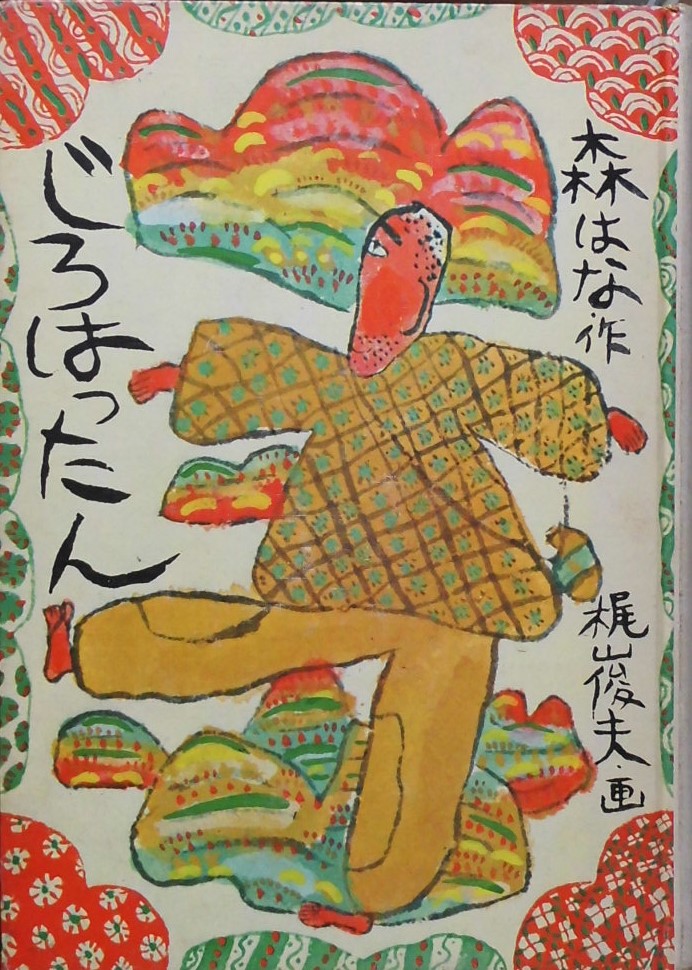 森はな作
じろはったん
梶山俊夫・画